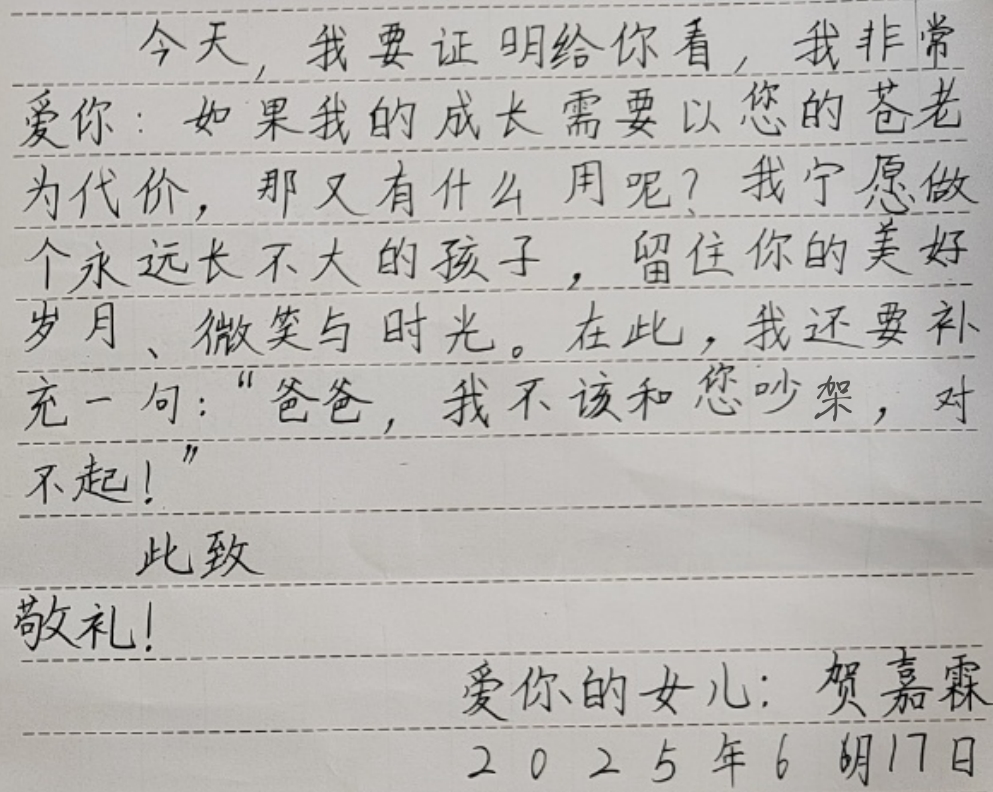 今天,我要证明给你看,我非常
爱你:如果我的成长需要以您的苍老
为代价,那又有什么用呢?我宁愿做
个永远长不大的孩子,留住你的美好
岁月、微笑与时光。在此,我还要补
充一句:“爸爸,我不该和您吵架,对
不起!”
此致
敬礼!
爱你的女儿:贺嘉霖
2025年6月17日